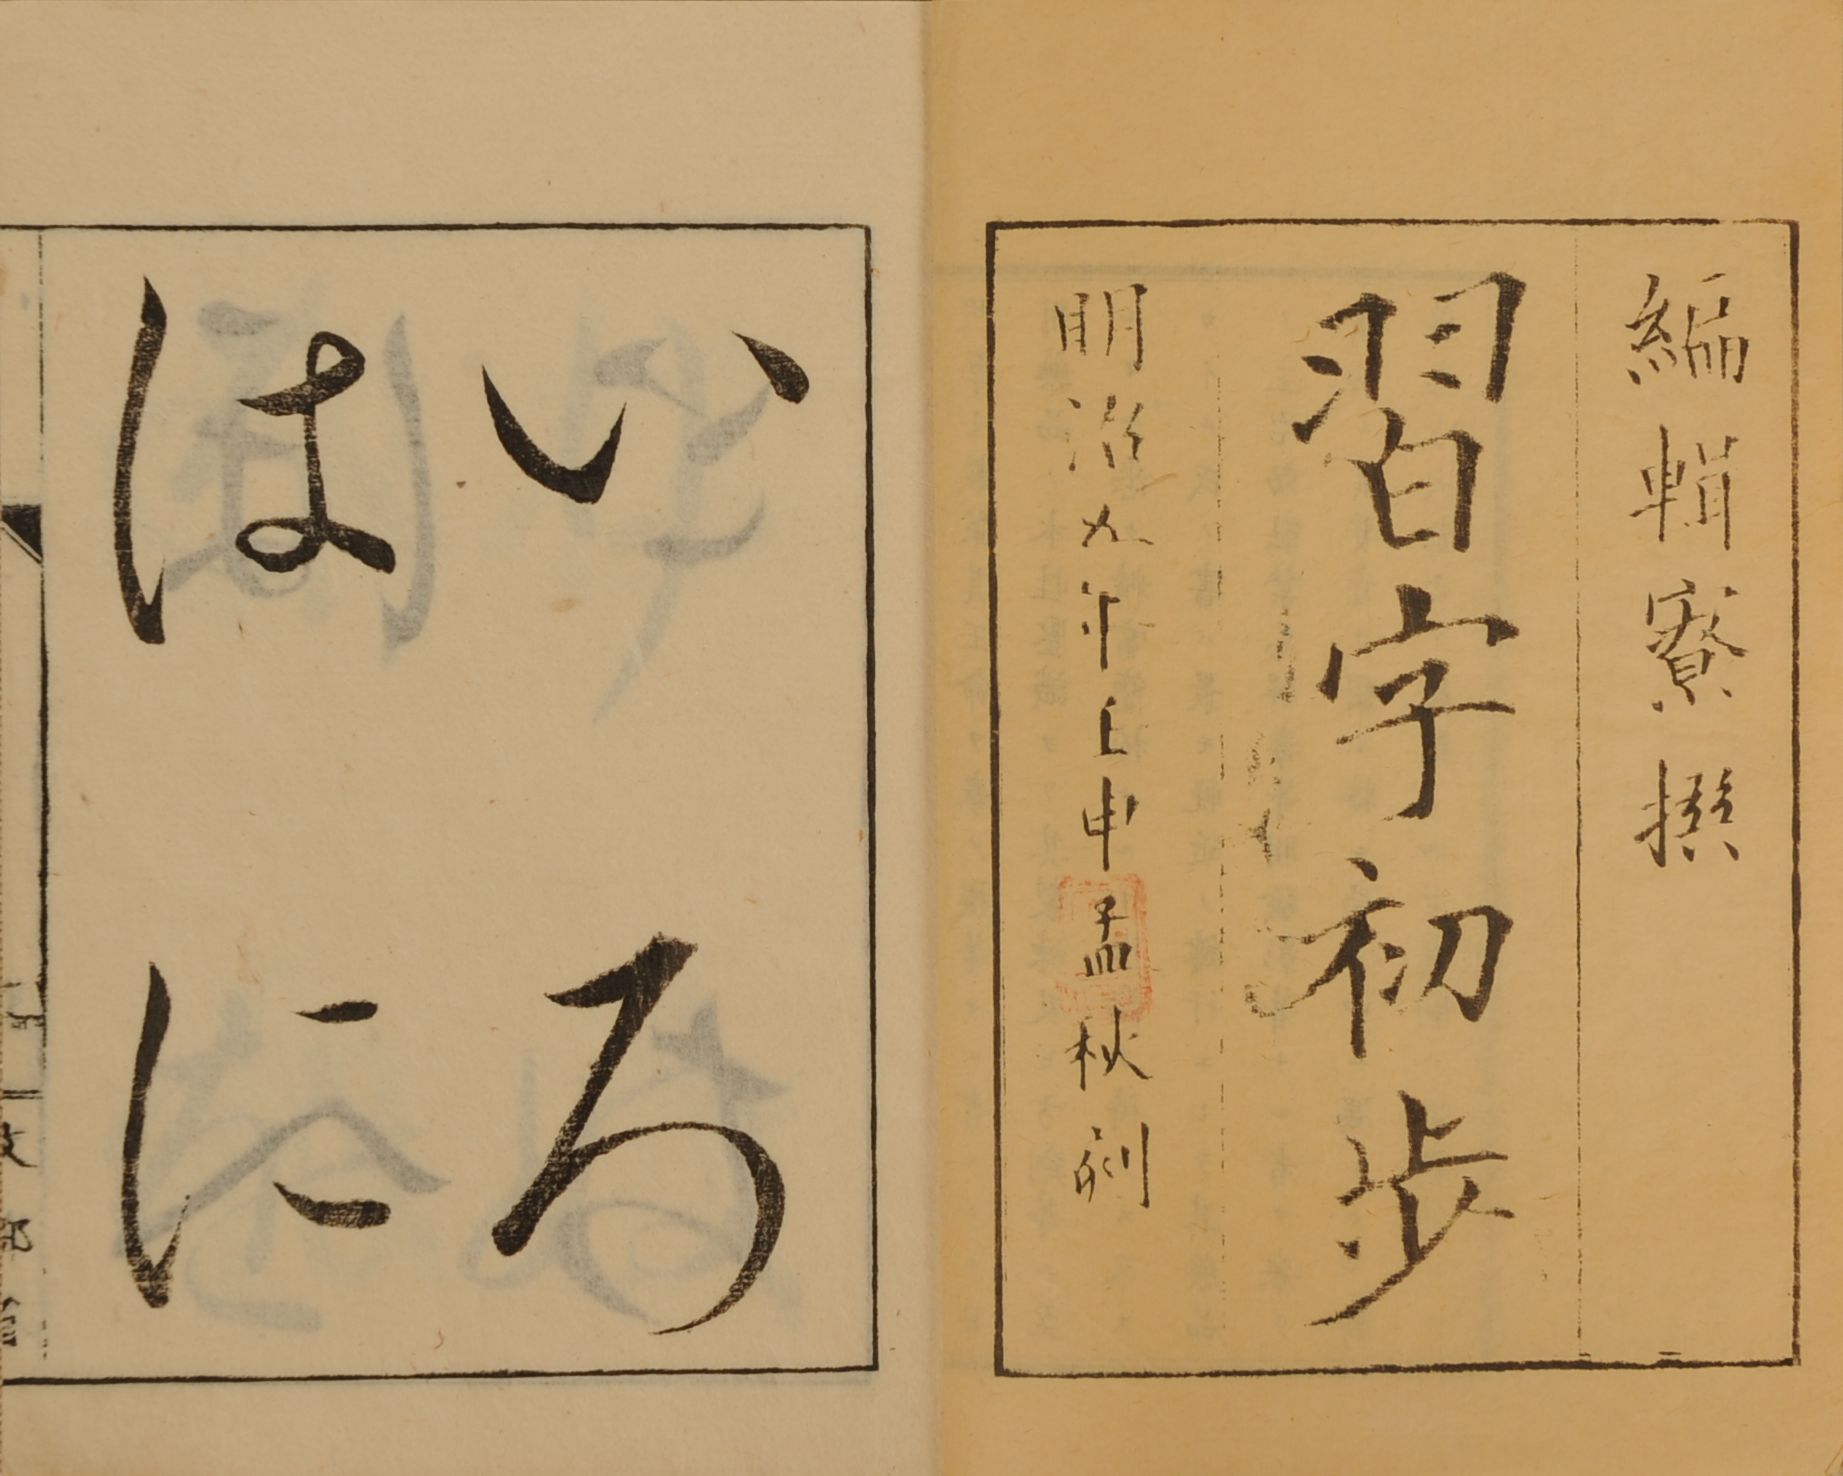 編輯寮撰
習字初歩
明治五年壬申孟秋刻
いろ
はに
文部省